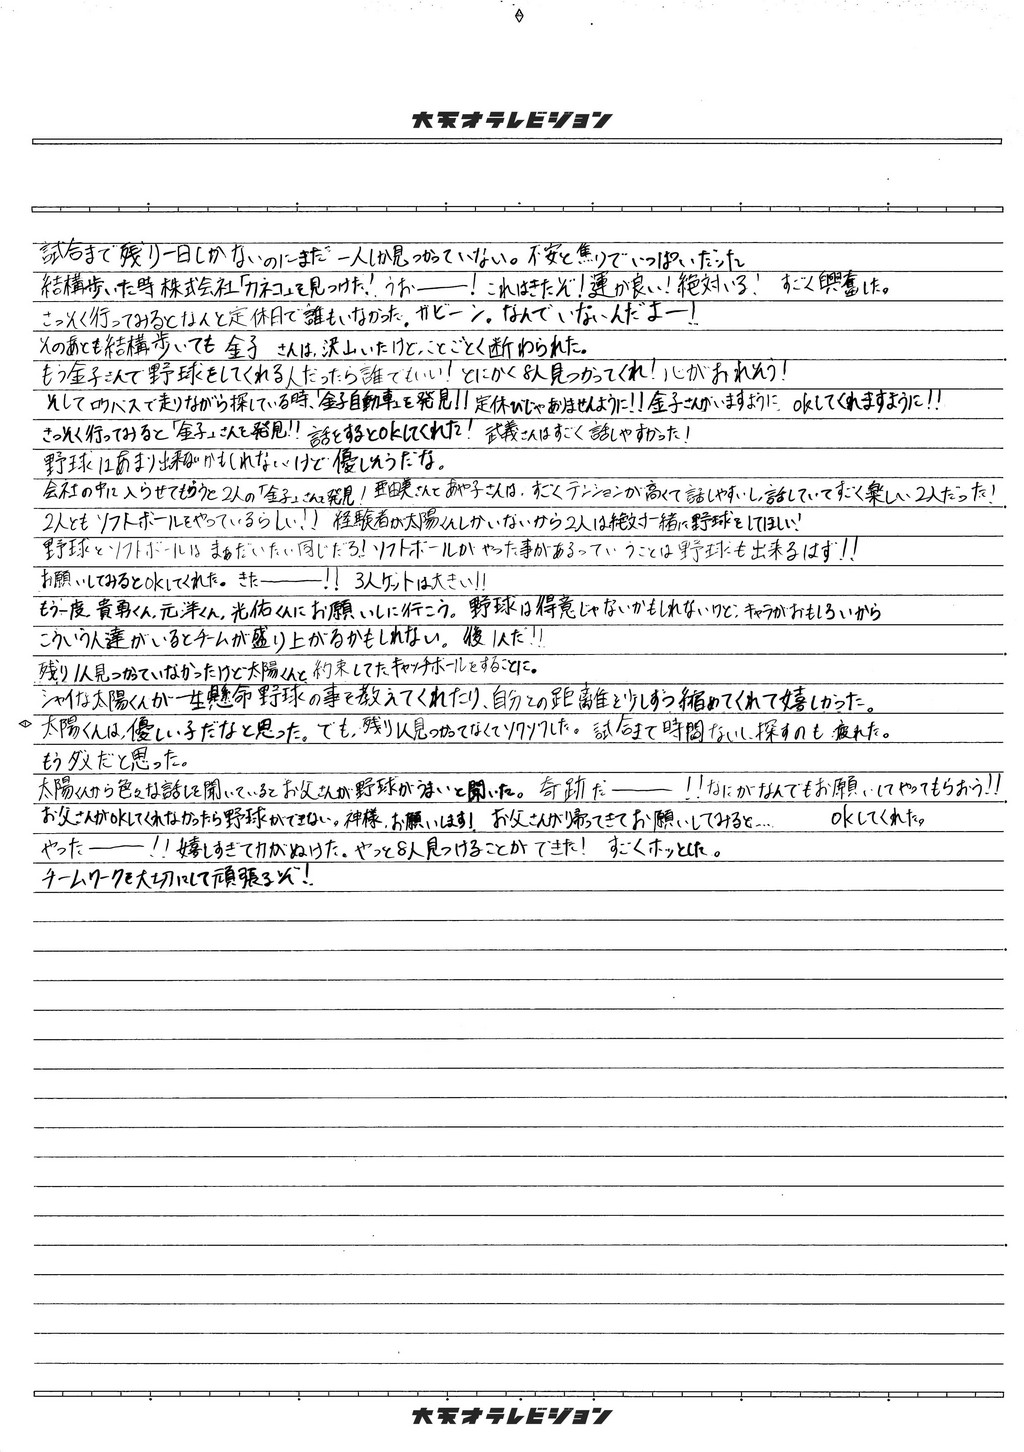 大天才テレビジョン
試合まで残り一日しかないのにまだ一人しか見つかっていない。不安と焦りでいっぱいだった
結構歩いた時株式会社「カネコ」を見つけた!うお――!これはきたぞ!運が良い!絶対いる! すごく興奮した。
さっそく行ってみるとなんと定休日で誰もいなかった。ガビーン。なんでいないんだよー!
そのあとも結構歩いても金子さんは、沢山いたけど、ことごとく断わられた。
もう金子さんで野球をしてくれる人だったら誰でもいい!とにかく8人見つかってくれ!心がおれそう!
そしてロウバスで走りながら探している時、「金子自動車」を発見!!定休びじゃありませんように!!金子さんがいますように okしてくれますように!!
さっそく行ってみると「金子」さんを発見!!話をするとokしてくれた!武義さんはすごく話しやすかった!
野球はあまり出来ないかもしれないけど優しそうだな。
会社の中に入らせてもらうと2人の「金子」さんを発見!亜由美さんとあや子さんは、すごくテンションが高くて話しやすいし、話していてすごく楽しい2人だった!
2人ともソフトボールをやっているらしい!!経験者が太陽くんしかいないから2人は絶対一緒に野球をしてほしい!
野球とソフトボールはまぁだいたい同じだろ!ソフトボールがやった事があるっていうことは野球も出来るはず!!
お願いしてみるとokしてくれた。きた――!! 3人ゲットは大きい!!
もう一度、貴勇くん、元洋くん、光佑くんにお願いしに行こう。野球は得意じゃないかもしれないけど、キャラがおもしろいから
こういう人達がいるとチームが盛り上がるかもしれない。後1人だ!!
残り1人見つかっていなかったけど太陽くんと約束してたキャッチボールをすることに。
シャイな太陽くんが一生懸命野球の事を教えてくれたり、自分との距離を少しずつ縮めてくれて嬉しかった。
太陽くんは、優しい子だなと思った。でも、残り1人見つかってなくてソワソワした。試合まで時間ないし、探すのも疲れた。
もうダメだと思った。
太陽くんから色々な話しを聞いているとお父さんが野球がうまいと聞いた。奇跡だ――!!なにがなんでもお願いしてやってもらおう!!
お父さんがokしてくれなかったら野球ができない。神様、お願いします! お父さんが帰ってきてお願いしてみると… okしてくれた。
やった――!!嬉しすぎて力がぬけた。やっと8人見つけることができた! すごくホッとした。
チームワークを大切にして頑張るぞ!
大天才テレビジョン